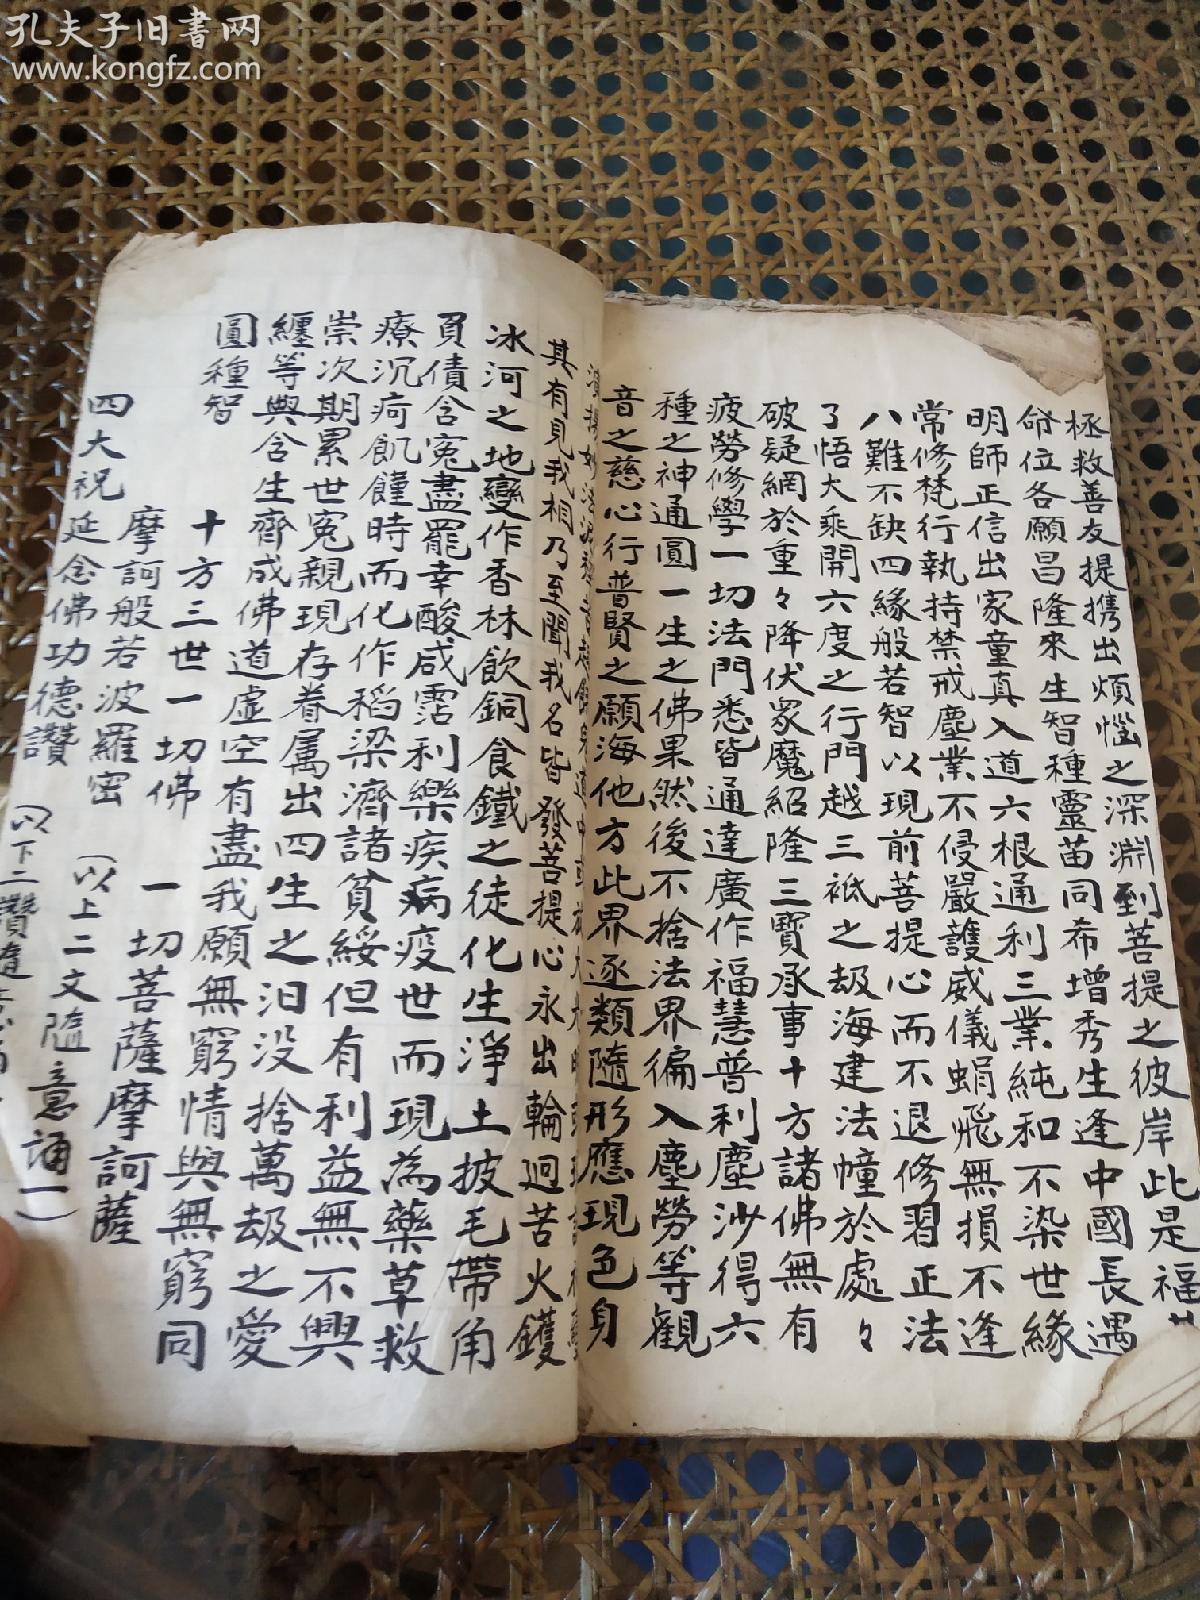 孔夫子旧書网
www.kongfz.com
拯救善友提携出煩惱之深淵到菩提之彼岸此是福
命位各願昌隆來生智種靈苗同希增秀生逢中國長遇
明師正信出家童真入道六根通利三業純和不染世緣
常修梵行執持禁戒塵業不侵嚴護威儀蜎飛無損不逢
八難不缺四緣般若智以現前菩提心而不退修習正法
了悟大乘開六度之行門越三祇之劫海建法幢於處々
破疑網於重々降伏眾魔紹隆三寶承事十方諸佛無有
疲勞修學一切法門悉皆通達廣作福慧普利塵沙得六
種之神通圓一生之佛果然後不捨法界徧入塵勞等觀
音之慈心行普賢之願海他方此界逐類隨形應現色身
其有見我相乃至聞我名皆發菩提心永出輪迴苦火鑊
冰河之地變作香林飲銅食鐵之徒化生淨土披毛帶角
負債含冤盡罷辛酸咸霑利樂疾病疫世而現為藥草救
療沉疴飢饉時而化作稻梁濟諸貧綏但有利益無不興
崇次期累世冤親現存眷属出四生之汩没捨萬劫之愛
纏等與含生齊成佛道虛空有盡我願無窮情與無窮同
圓種智
十方三世一切佛 一切菩薩摩訶薩
摩訶般若波羅密 (以上二文隨意誦一)
四大祝延念佛功德讚 (以下二讚隨